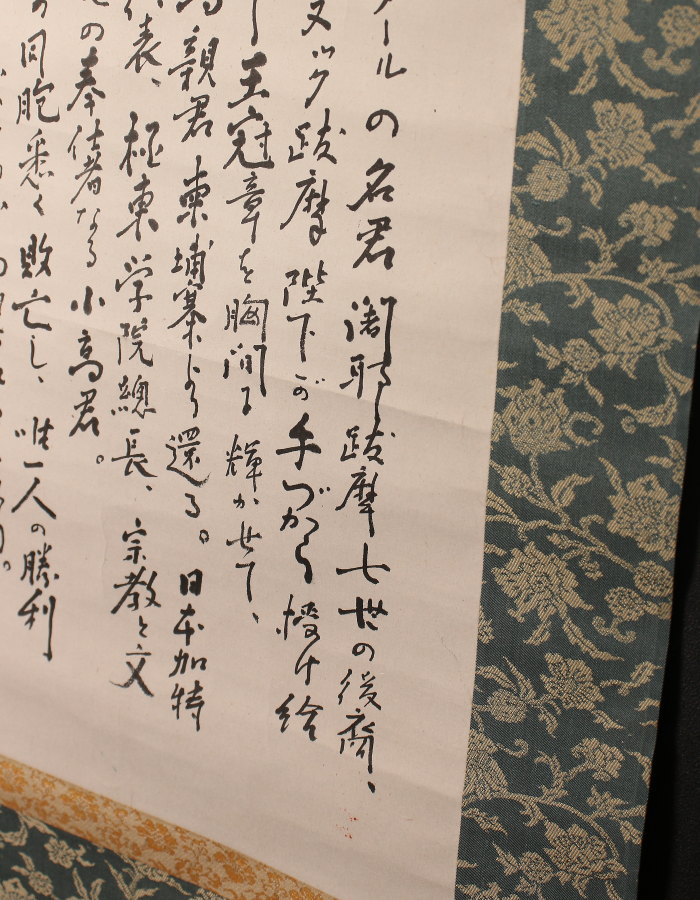 ールの名君闍耶跋摩七世の後裔、
ヌック跋摩陛下が手づから授け給
王冠章を胸間に輝かせて、
親君柬埔寨より還る。日本加特
代表、極東学院總長、宗教と文
の奉仕者なる小高君。
の同胞悉く敗亡し、唯一人の勝利